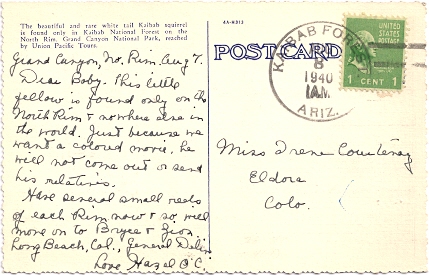 The beautiful and rare white tail Kaibab squirrel
is found only in Kaibab National Forest on the
North Rim, Grand Canyon National Park, reached
by Union Pacific Tours.
4A-H313
POST CARD
KAIBAB FOREST
8
1940
1AM
ARIZ.
UNITED
STATES
POSTAGE
1 CENT 1
Grand Canyon, No. Rim, Aug 7.
Dear Boby. This little
fellow is found only on the
North Rim & nowhere else in
the world. Just because we
want a colored movie, he
will not come out or send
his relatives.
Have several small rests
of each Rim now & so, will
move on to Bryce & Zion.
Long Beach, Cal., General Deliv.
Love Hazel O'C.
Miss Irene Courtenay
Eldora
Colo.